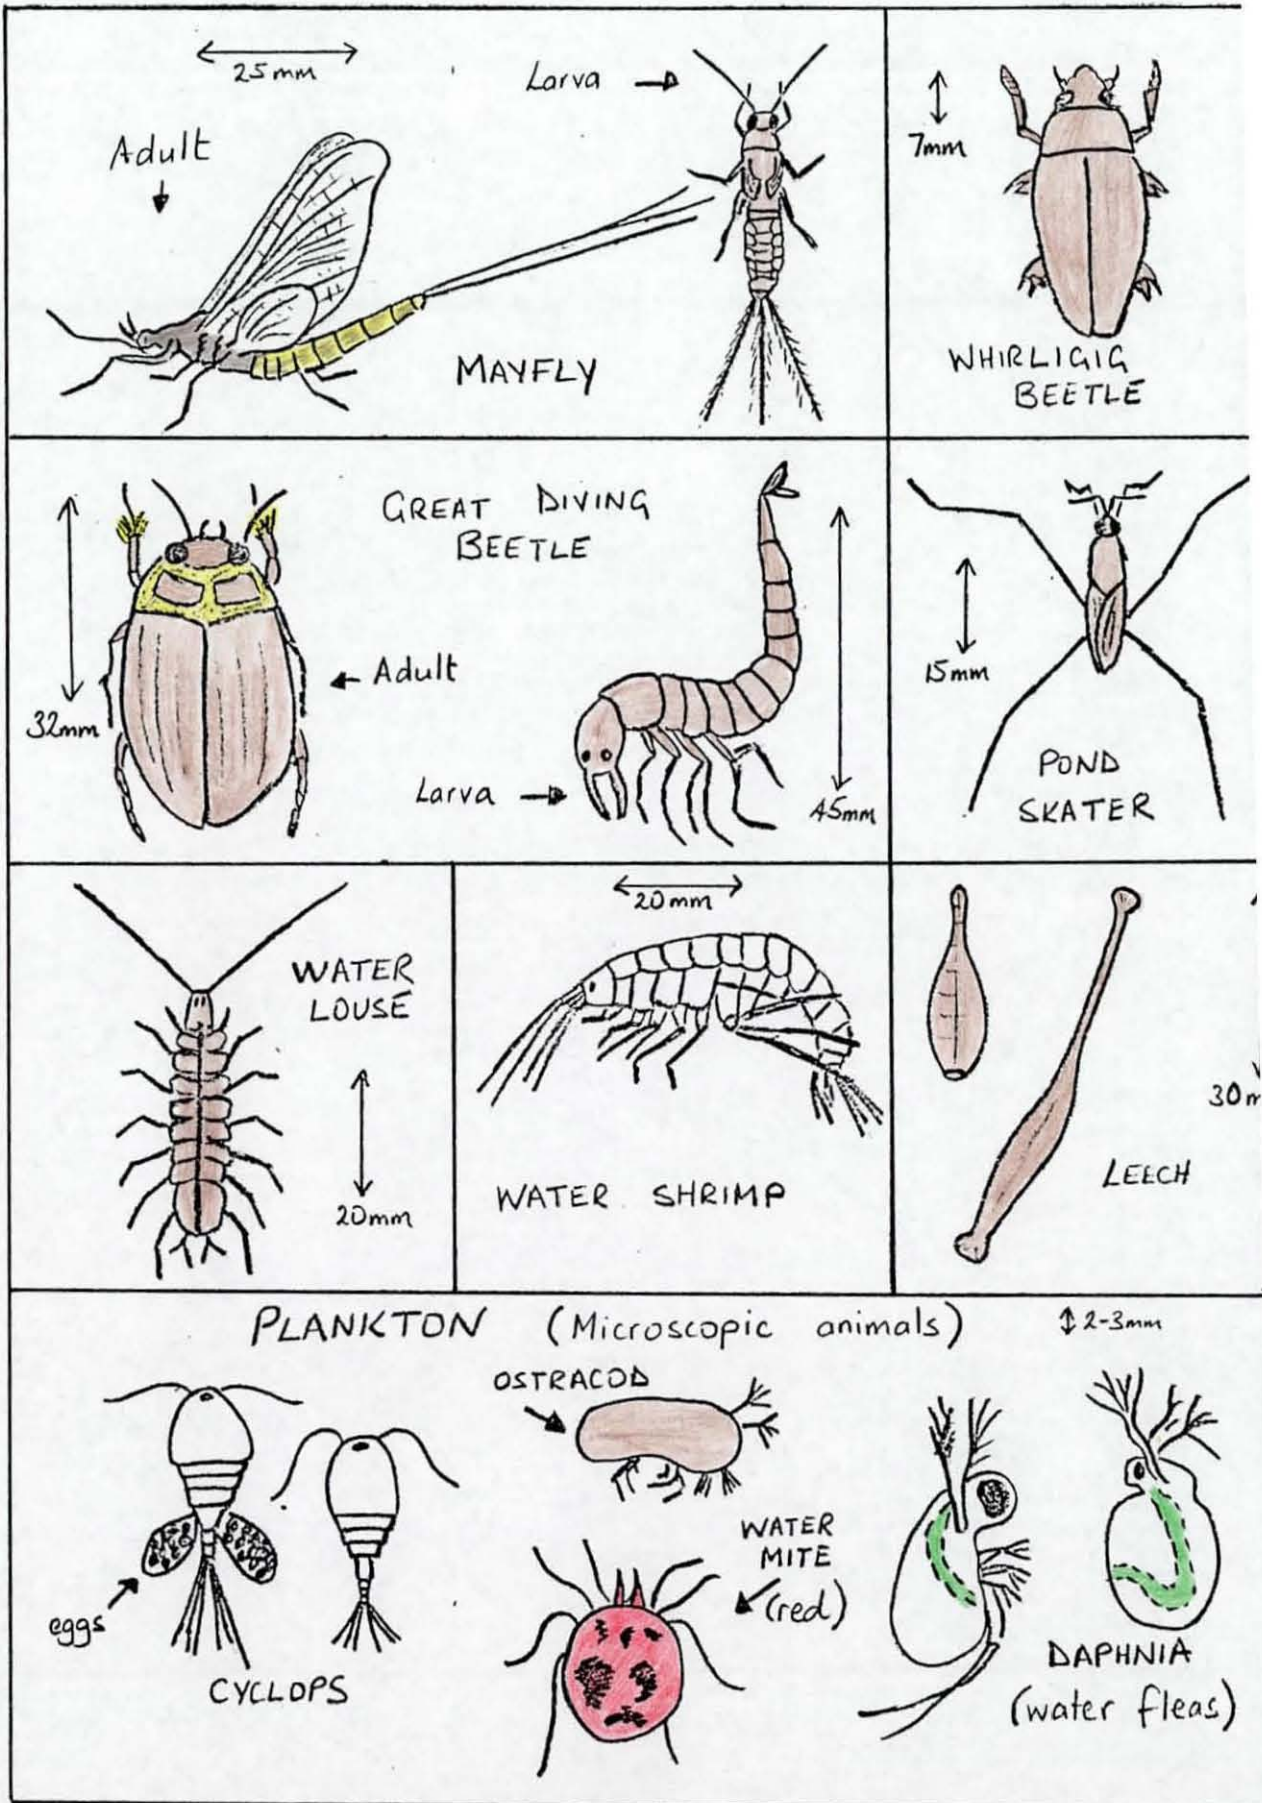 25mm
Larva
Adult
MAYFLY
7mm
WHIRLIGIG
BEETLE
GREAT DIVING
BEETLE
32mm
Adult
Larva
45mm
15mm
POND
SKATER
WATER
LOUSE
20mm
20mm
WATER SHRIMP
30m
LEECH
PLANKTON (Microscopic animals)
2-3mm
OSTRACOD
eggs
CYCLOPS
WATER
MITE
(red)
DAPHNIA
(water fleas)